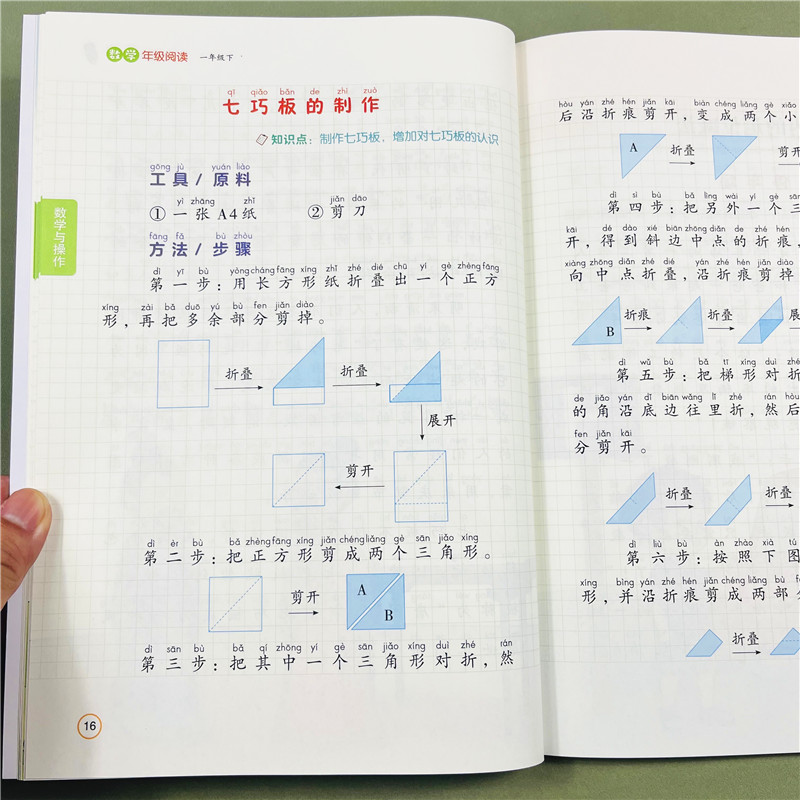 数学年级阅读 一年级下
qī qiǎo bǎn de zhì zuò
七巧板的制作
知识点：制作七巧板，增加对七巧板的认识
gōng jù yuán liào
工具/原料
yì zhāng zhǐ jiǎn dāo
①一张A4纸 ②剪刀
fāng fǎ bù zhòu
方法/步骤
dì yī bù yòng cháng fāng xíng zhǐ zhé dié chū yí gè zhèng fāng
第一步：用长方形纸折叠出一个正方
xíng zài bǎ duō yú bù fen jiǎn diào
形，再把多余部分剪掉。
折叠 折叠
展开
剪开
dì èr bù bǎ zhèng fāng xíng jiǎn chéng liǎng gè sān jiǎo xíng
第二步：把正方形剪成两个三角形。
剪开 A B
dì sān bù bǎ qí zhōng yí gè sān jiǎo xíng duì zhé rán
第三步：把其中一个三角形对折，然
16
数学与操作
hòu yán zhé hén jiǎn kāi biàn chéng liǎng gè xiǎo
后沿折痕剪开，变成两个小
A 折叠 剪开
dì sì bù bǎ lìng wài yí gè sān
第四步：把另外一个三
kāi dé dào xié biān zhōng diǎn de zhé hén
开，得到斜边中点的折痕，
xiàng zhōng diǎn zhé dié yán zhé hén jiǎn diào
向中点折叠，沿折痕剪掉
B 折痕 折叠 展
dì wǔ bù bǎ tī xíng duì zhé
第五步：把梯形对折
de jiǎo yán dǐ biān wǎng lǐ zhé rán hòu
的角沿底边往里折，然后
fēn jiǎn kāi
分剪开。
折叠 折叠
dì liù bù àn zhào xià tú
第六步：按照下图
xíng bìng yán zhé hén jiǎn chéng liǎng bù
形，并沿折痕剪成两部
折叠